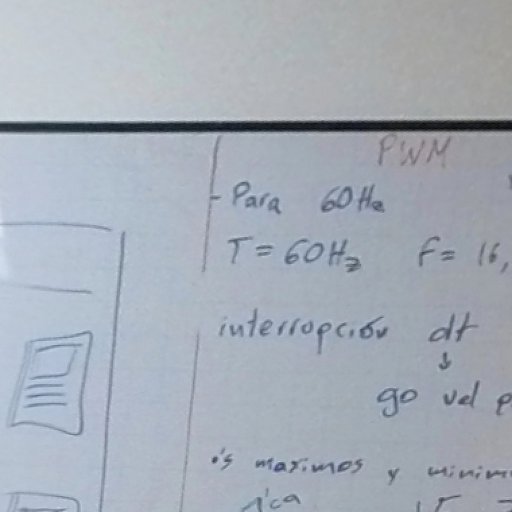 PWM
- Para 60Hz
T = 60Hz F = 16,
interrupción dt
↓
go vel p
o's maximos y minim
ica